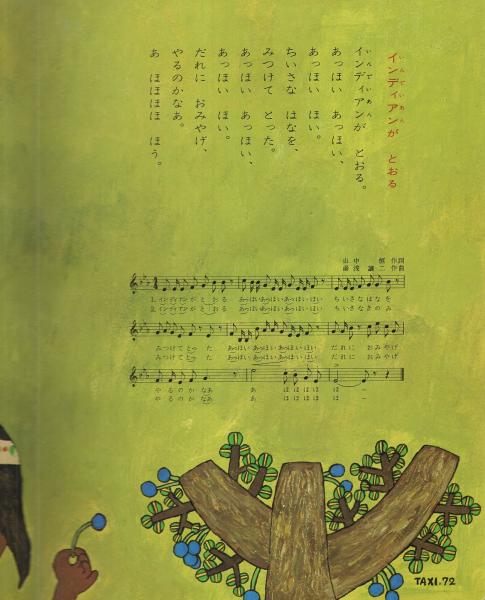 インディアンが とおる
インディアンが とおる。
あっほい あっほい、
あっほい ほい。
ちいさな はなを、
みつけて とった。
あっほい あっほい、
あっほい ほい。
だれに おみやげ、
やるのかなあ。
あ ほほほほ ほう。
山中 恒 作詞
湯浅 譲二 作曲
1. インディアンが と お る あっほい あっほい あっほい ほい ち い さ な は な を
2. インディアンが と お る あっほい あっほい あっほい ほい ち い さ な き の み
みつけて と っ た あっほい あっほい あっほい ほい だ れ に お み や げ
みつけて と っ た あっほい あっほい あっほい ほい だ れ に お み や げ
や る の か な あ あ ほ ほ ほ ほ ほ
や る の か な あ あ ほ ほ ほ ほ ほ
TAXI.72